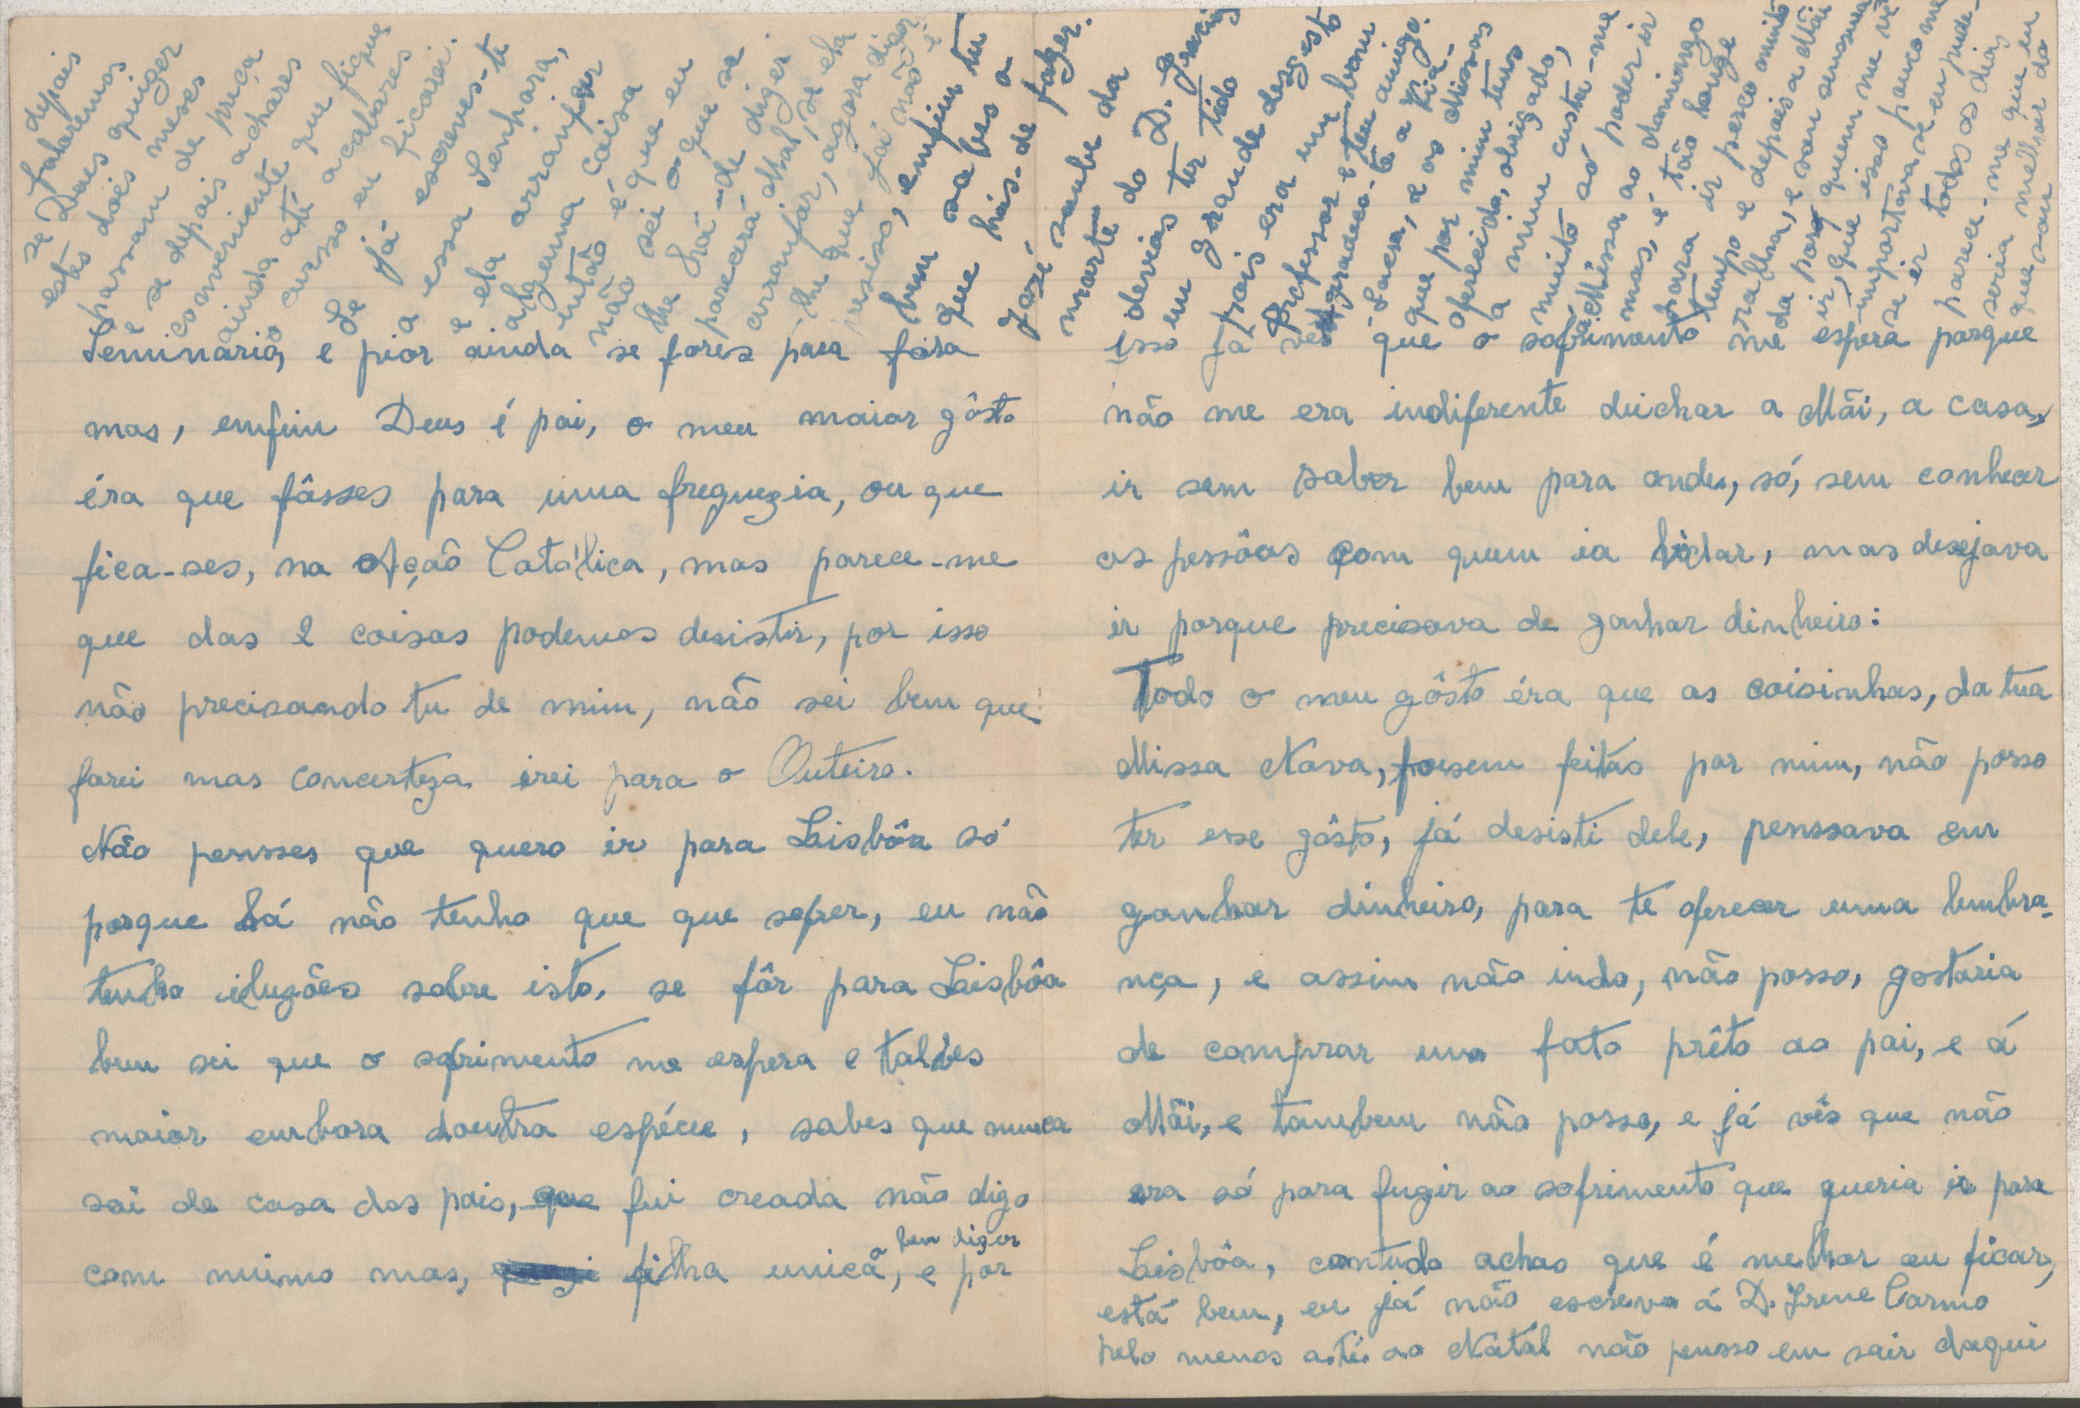 Seminario, e pior ainda se fores para fora
mas, enfim Deus é pai, o meu maior gôsto
éra que fâsses para uma freguezia, ou que
fica-ses, na Ação Católica, mas parece-me
que das 2 coisas podemos desistir, por isso
não precisando tu de mim, não sei bem que
farei mas concerteza irei para o Outeiro.
Não pensses que quero ir para Lisbôa só
porque lá não tenho que que sofrer, eu não
tenho iluzões sobre isto, se fôr para Lisbôa
bem sei que o sofrimento me espera e talves
maior embora doutra espécie, sabes que nunca
sai de casa dos pais, que fui creada não digo
com mimo mas, filha unica, a bem dizer e por
isso já vês que o sofrimento me espera porque
não me era indiferente deichar a Mãi, a casa,
ir sem saber bem para onde, só, sem conhecer
as pessôas com quem ia lidar, mas desejava
ir porque precisava de ganhar dinheiro:
Todo o meu gôsto éra que as coisinhas, da tua
Missa Nova, fossem feitas por mim, não posso
ter esse gôsto, já desisti dele, penssava em
ganhar dinheiro, para te oferecer uma lembra-
nça, e assim não indo, não posso, gostaria
de comprar um fato prêto ao pai, e á
Mãi, e tambem não posso, e já vês que não
era só para fugir ao sofrimento que queria ir para
Lisbôa, contudo achas que é melhor eu ficar,
está bem, eu já não escrevo á D. Irene Carmo
pelo menos até ao Natal não pensso em sair daqui
depois
falaremos
se Deus quizer
estes dois meses
passam de preça
e se depois achares
conveniente que fique
ainda até acabares
o curso eu ficarei.
Se já escreves-te
a essa Senhora,
e ela arranjar
alguma coisa
então é que eu
não sei o que se
lhe há-de dizer.
parecerá Mal, se ela
arranjar, agora dizer
-lhe que já não é
preciso, enfim tu
bem sabes o
que hás-de fazer.
José soube da
morte do D.
deveias ter tido
um grande desgosto
pois era um bom
Professor e teu amigo.
Agradece-te a Tia
que por mim tens
oferecido, obrigado,
a mim custa-me
muito só poder ir
á Missa ao domingo
mas, é tão longe
para ir perco muito
tempo e depois a Mãi
ralha, e sou
da porq quem me vê
ir, que isso pouco me
importava se eu pude-
se ir todos os dias
parece-me que eu
seria melhor do
que sou